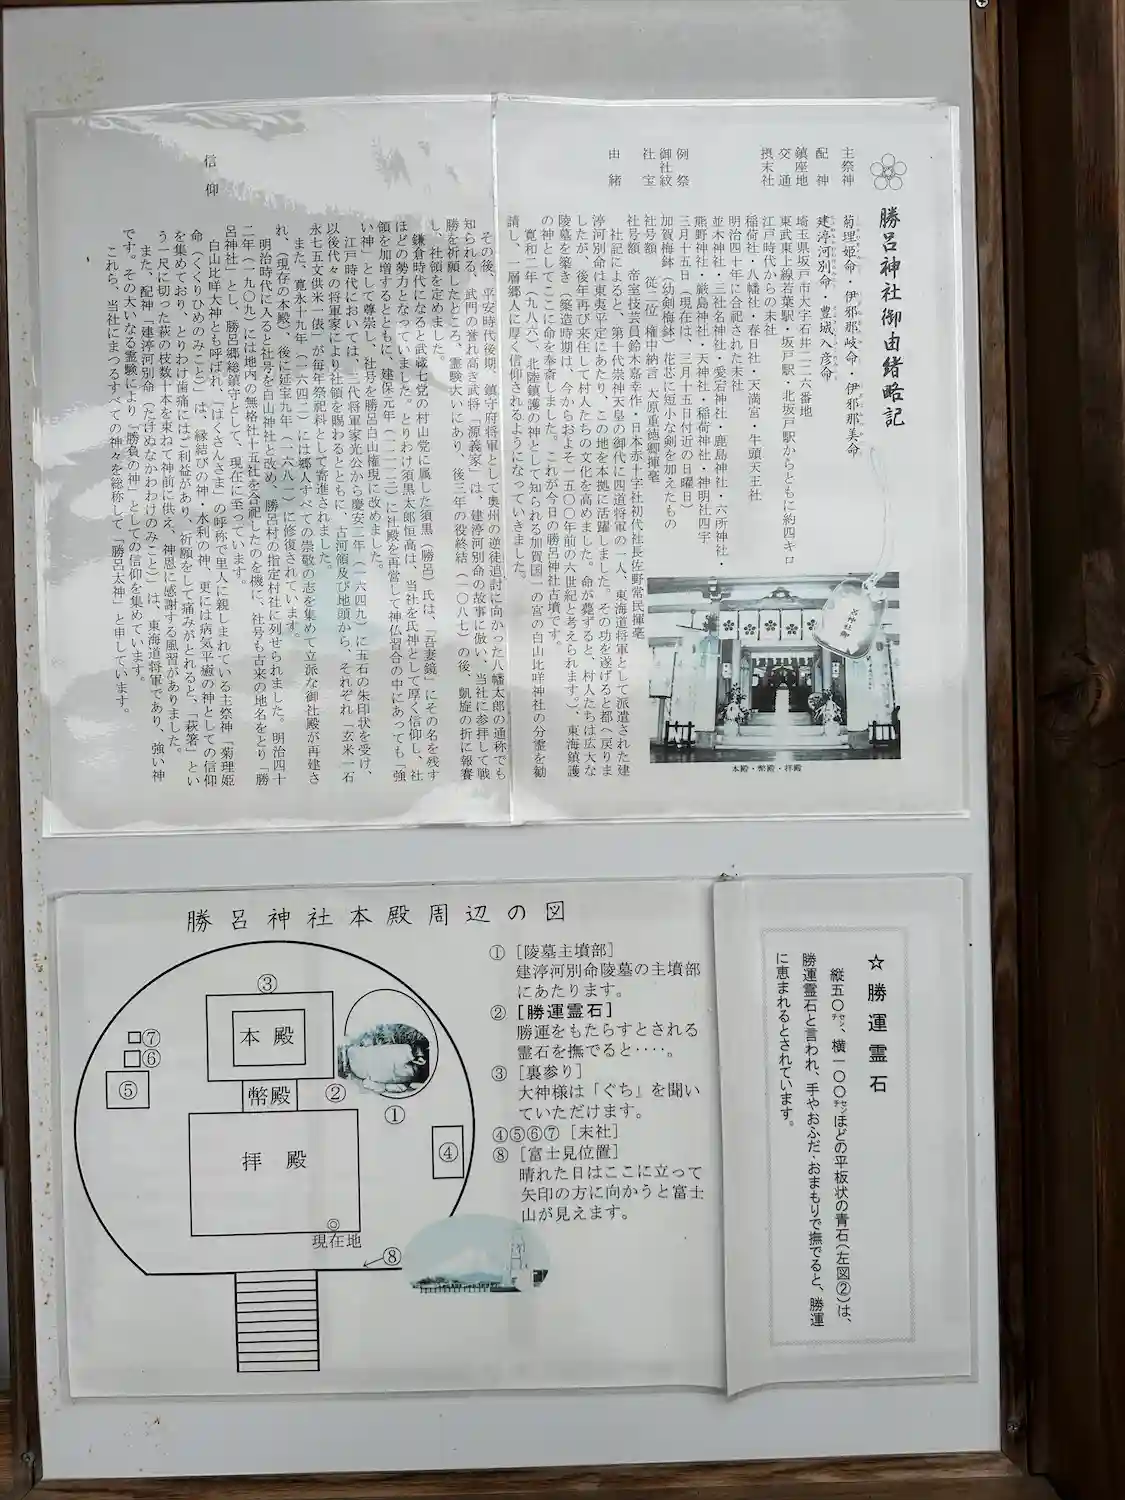 勝呂神社御由緒略記
主祭神　菊理姫命・伊邪那岐命・伊邪那美命
配神　建渟河別命・豊城入彦命
鎮座地　埼玉県坂戸市大字石井二二二六番地
交通　東武東上線若葉駅・坂戸駅・北坂戸駅からともに約四キロ
摂末社　江戸時代からの末社
稲荷社・八幡社・春日社・天満宮・牛頭天王社
明治四十年に合祀された末社
並木神社・三社名神社・愛宕神社・鹿島神社・六所神社・
熊野神社・厳島神社・天神社・稲荷神社・神明社四宇
例祭　三月十五日（現在は、三月十五日付近の日曜日）
御社紋　加賀梅鉢（幼剣梅鉢）花芯に短小な剣を加えたもの
社宝　社号額　従二位　権中納言　大原重徳卿揮毫
社号額　帝室技芸員鈴木嘉幸作・日本赤十字社初代社長佐野常民揮毫
由緒　社記によると、第十代崇神天皇の御代に四道将軍の一人、東海道将軍として派遣された建
渟河別命は東夷平定にあたり、この地を本拠に活躍しました。その功を遂げると都へ戻りま
したが、後年再び来住して村人たちの文化を高めました。命が薨ずると、村人たちは広大な
陵墓を築き（築造時期は、今からおよそ一五〇〇年前の六世紀と考えられます）、東海鎮護
の神としてここに命を奉斎しました。これが今日の勝呂神社古墳です。
寛和二年（九八六）、北陸鎮護の神として知られる加賀国一の宮の白山比咩神社の分霊を勧
請し、一層郷人に厚く信仰されるようになっていきました。
その後、平安時代後期、鎮守府将軍として奥州の逆徒追討に向かった八幡太郎の通称でも
知られる、武門の誉れ高き武将「源義家」は、建渟河別命の故事に倣い、当社に参拝して戦
勝を祈願したところ、霊験大いにあり、後三年の役終結（一〇八七）の後、凱旋の折に報賽
し、社領を定めました。
鎌倉時代になると武蔵七党の村山党に属した須黒（勝呂）氏は、「吾妻鏡」にその名を残す
ほどの勢力となっていました。とりわけ須黒太郎恒高は、当社を氏神として厚く信仰し、社
領を加増するとともに、建保元年（一二一三）に社殿を再営して神仏習合の中にあっても「強
い神」として尊崇し、社号を勝呂白山権現に改めました。
江戸時代においては、三代将軍家光公から慶安二年（一六四九）に五石の朱印状を受け、
以後代々の将軍家により社領を賜わるとともに、古河領及び地頭から、それぞれ「玄米一石
永七五文供米一俵」が毎年祭祀料として寄進されました。
また、寛永十九年（一六四二）には郷人すべての崇敬の志を集めて立派な御社殿が再建さ
れ、（現存の本殿）後に延宝九年（一六八一）に修復されています。
明治時代に入ると社号を白山神社と改め、勝呂村の指定村社に列せられました。明治四十
二年（一九〇九）には地内の無格社十五社を合祀したのを機に、社号も古来の地名をとり「勝
呂神社」とし、勝呂郷総鎮守として、現在に至っています。
信仰　白山比咩大神とも呼ばれ、「はくさんさま」の呼称で里人に親しまれている主祭神「菊理姫
命（くくりひめのみこと）」は、縁結びの神・水利の神、更には病気平癒の神としての信仰
を集めており、とりわけ歯痛にはご利益があり、祈願をして痛みがとれると、「萩箸」とい
う一尺に切った萩の枝数十本を束ねて神前に供え、神恩に感謝する風習がありました。
また、配神「建渟河別命（たけぬなかわわけのみこと）」は、東海道将軍であり、強い神
です。その大いなる霊験により「勝負の神」としての信仰を集めています。
これら、当社にまつわるすべての神々を総称して「勝呂大神」と申しています。
本殿・幣殿・拝殿
勝呂神社本殿周辺の図
③
本殿
幣殿
拝殿
②
①
⑦
⑥
⑤
④
◎
現在地
⑧
①［陵墓主墳部］
建渟河別命陵墓の主墳部
にあたります。
②［勝運霊石］
勝運をもたらすとされる
霊石を撫でると‥‥。
③［裏参り］
大神様は「ぐち」を聞い
ていただけます。
④⑤⑥⑦［末社］
⑧［富士見位置］
晴れた日はここに立って
矢印の方に向かうと富士
山が見えます。
☆勝運霊石
縦五〇㌢、横一〇〇㌢ほどの平板状の青石（左図②）は、
勝運霊石と言われ、手やおふだ・おまもりで撫でると、勝運
に恵まれるとされています。